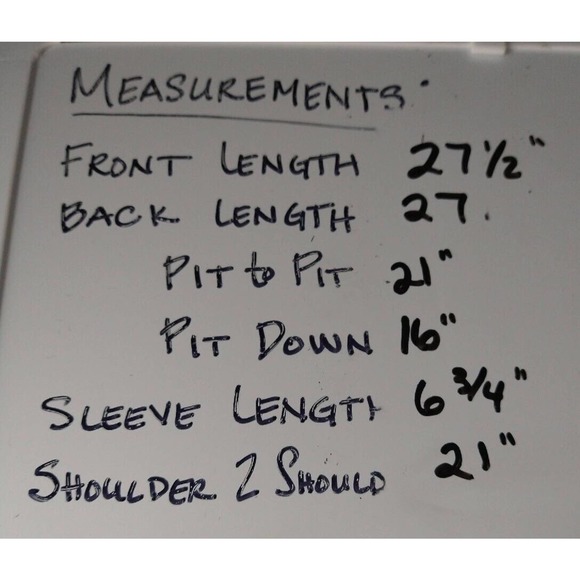 MEASUREMENTS.
FRONT LENGTH 27 1/2"
BACK LENGTH 27.
PIT to PIT 21"
PIT DOWN 16"
SLEEVE LENGTH 6 3/4"
SHOULDER 2 SHOULD 21"